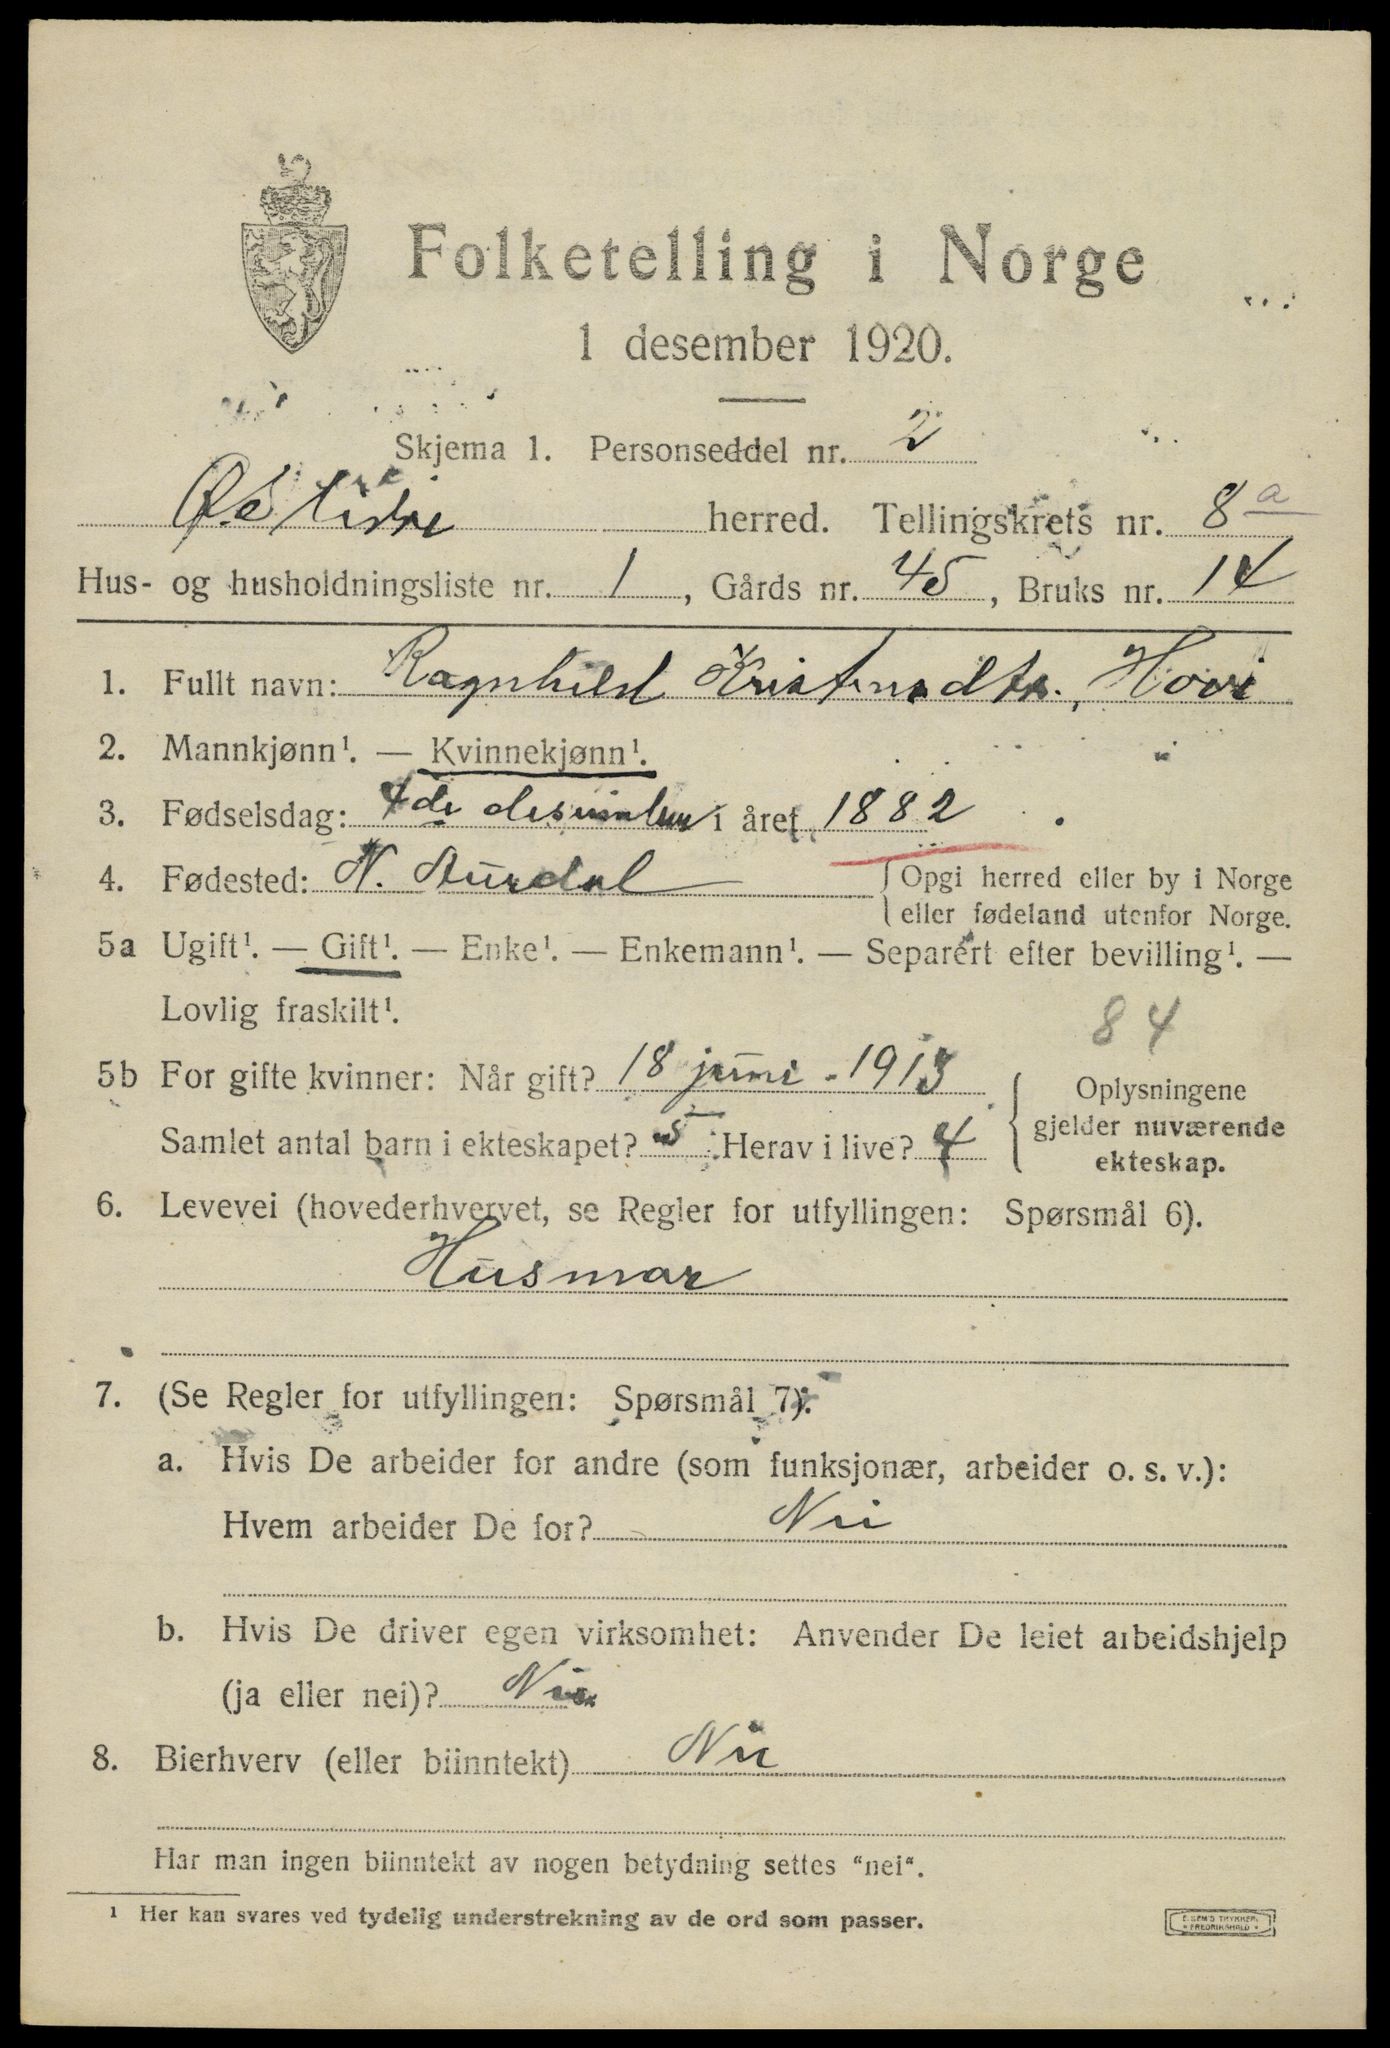 Folketelling i Norge
1 desember 1920.
Skjema 1. Personseddel nr. 2
Ø. Slidre herred. Tellingskrets nr. 8 a
Hus- og husholdningsliste nr. 1, Gårds nr. 45, Bruks nr. 14
1. Fullt navn: Ragnhild Hovi
2. Mannkjønn¹. — Kvinnekjønn¹.
3. Fødselsdag: 4de desember i året 1882
4. Fødested: N. Aurdal {Opgi herred eller by i Norge
eller fødeland utenfor Norge.
5a Ugift¹. — Gift¹. — Enke¹. — Enkemann¹. — Separert efter bevilling¹. —
Lovlig fraskilt¹.
84
5b For gifte kvinner: Når gift? 18 juni - 1913
Samlet antal barn i ekteskapet? 5 Herav i live? 4
Oplysningene
gjelder nuværende
ekteskap.
6. Levevei (hovederhvervet, se Regler for utfyllingen: Spørsmål 6).
Husmor
7. (Se Regler for utfyllingen: Spørsmål 7):
a. Hvis De arbeider for andre (som funksjonær, arbeider o. s. v.):
Hvem arbeider De for? Nei
b. Hvis De driver egen virksomhet: Anvender De leiet arbeidshjelp
(ja eller nei)? Nei
8. Bierhverv (eller biinntekt) Nei
Har man ingen biinntekt av nogen betydning settes "nei".
¹ Her kan svares ved tydelig understrekning av de ord som passer.
E. SEM'S TRYKKERI
* FREDRIKSHALD *